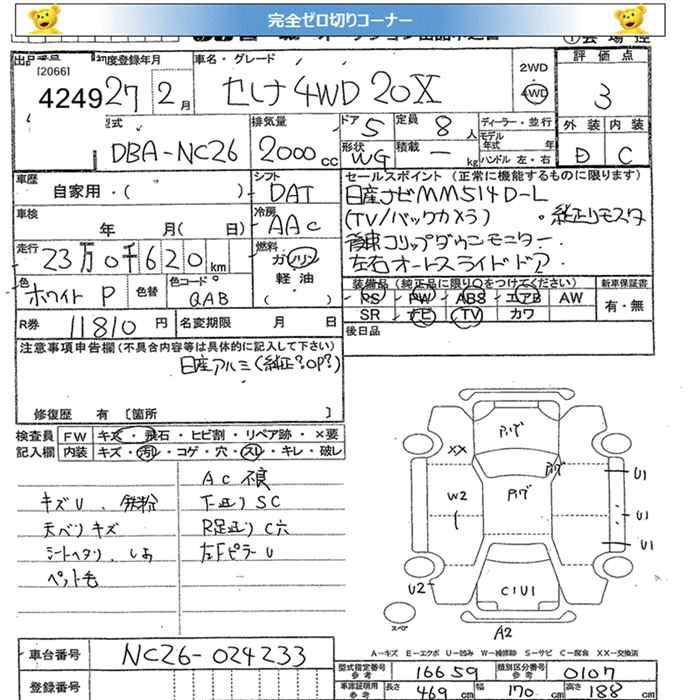 完全ゼロ切りコーナー
出品番号 初度登録年月 車名・グレード 2WD 評価点
[2066]
4249 27 2月 セレナ 4WD 20X 4WD 3
型式 排気量 ドア 5 定員 8人 ディーラー・並行 外装 内装
DBA-NC26 2000cc 形状 WG 積載 — kg モデル 年式 年 ハンドル 左・右 D C
車歴 自家用・( ) シフト DAT セールスポイント (正常に機能するものに限ります)
車検 年 月(日) 冷房 AAC
日産ナビMM514D-L
(TV/バックカメラ)
走行 23万0千620km 燃料 ガソリン 軽油 ( )
後席フリップダウンモニター
左右オートスライドドア
色 ホワイトP 色替 色コード QAB
装備品 (純正品に限り○をつけてください) 新車保証書
PS PW ABS エアB AW 有・無
SR ナビ TV カワ
R券 11810円 名変期限 月 日
後日品
注意事項申告欄 (不具合内容等は具体的に記入して下さい)
日産アルミ(純正?OP?)
修復歴 有 [箇所 ]
検査員 FW キズ・飛石・ヒビ割・リペア跡・×要
記入欄 内装 キズ・汚レ・コゲ・穴・スレ・キレ・破レ
AC不良
キズU、鉄粉
下廻りSC
天バリキズ
R足廻りC穴
シートヘタリ、しお
左FピラーU
ペット毛
アルブ
XX アルブ
W2 アルブ U1
U1
U1
U2 C1U1
スペア
A2
A−キズ E−エクボ U−凹み W−補修跡 S−サビ C−腐食 XX−交換済
車台番号 NC26-024233
型式指定番号 参考 16659 類別区分番号 参考 0107
登録番号
車庫証明用 参考 長さ 469cm 幅 170cm 高さ 188cm